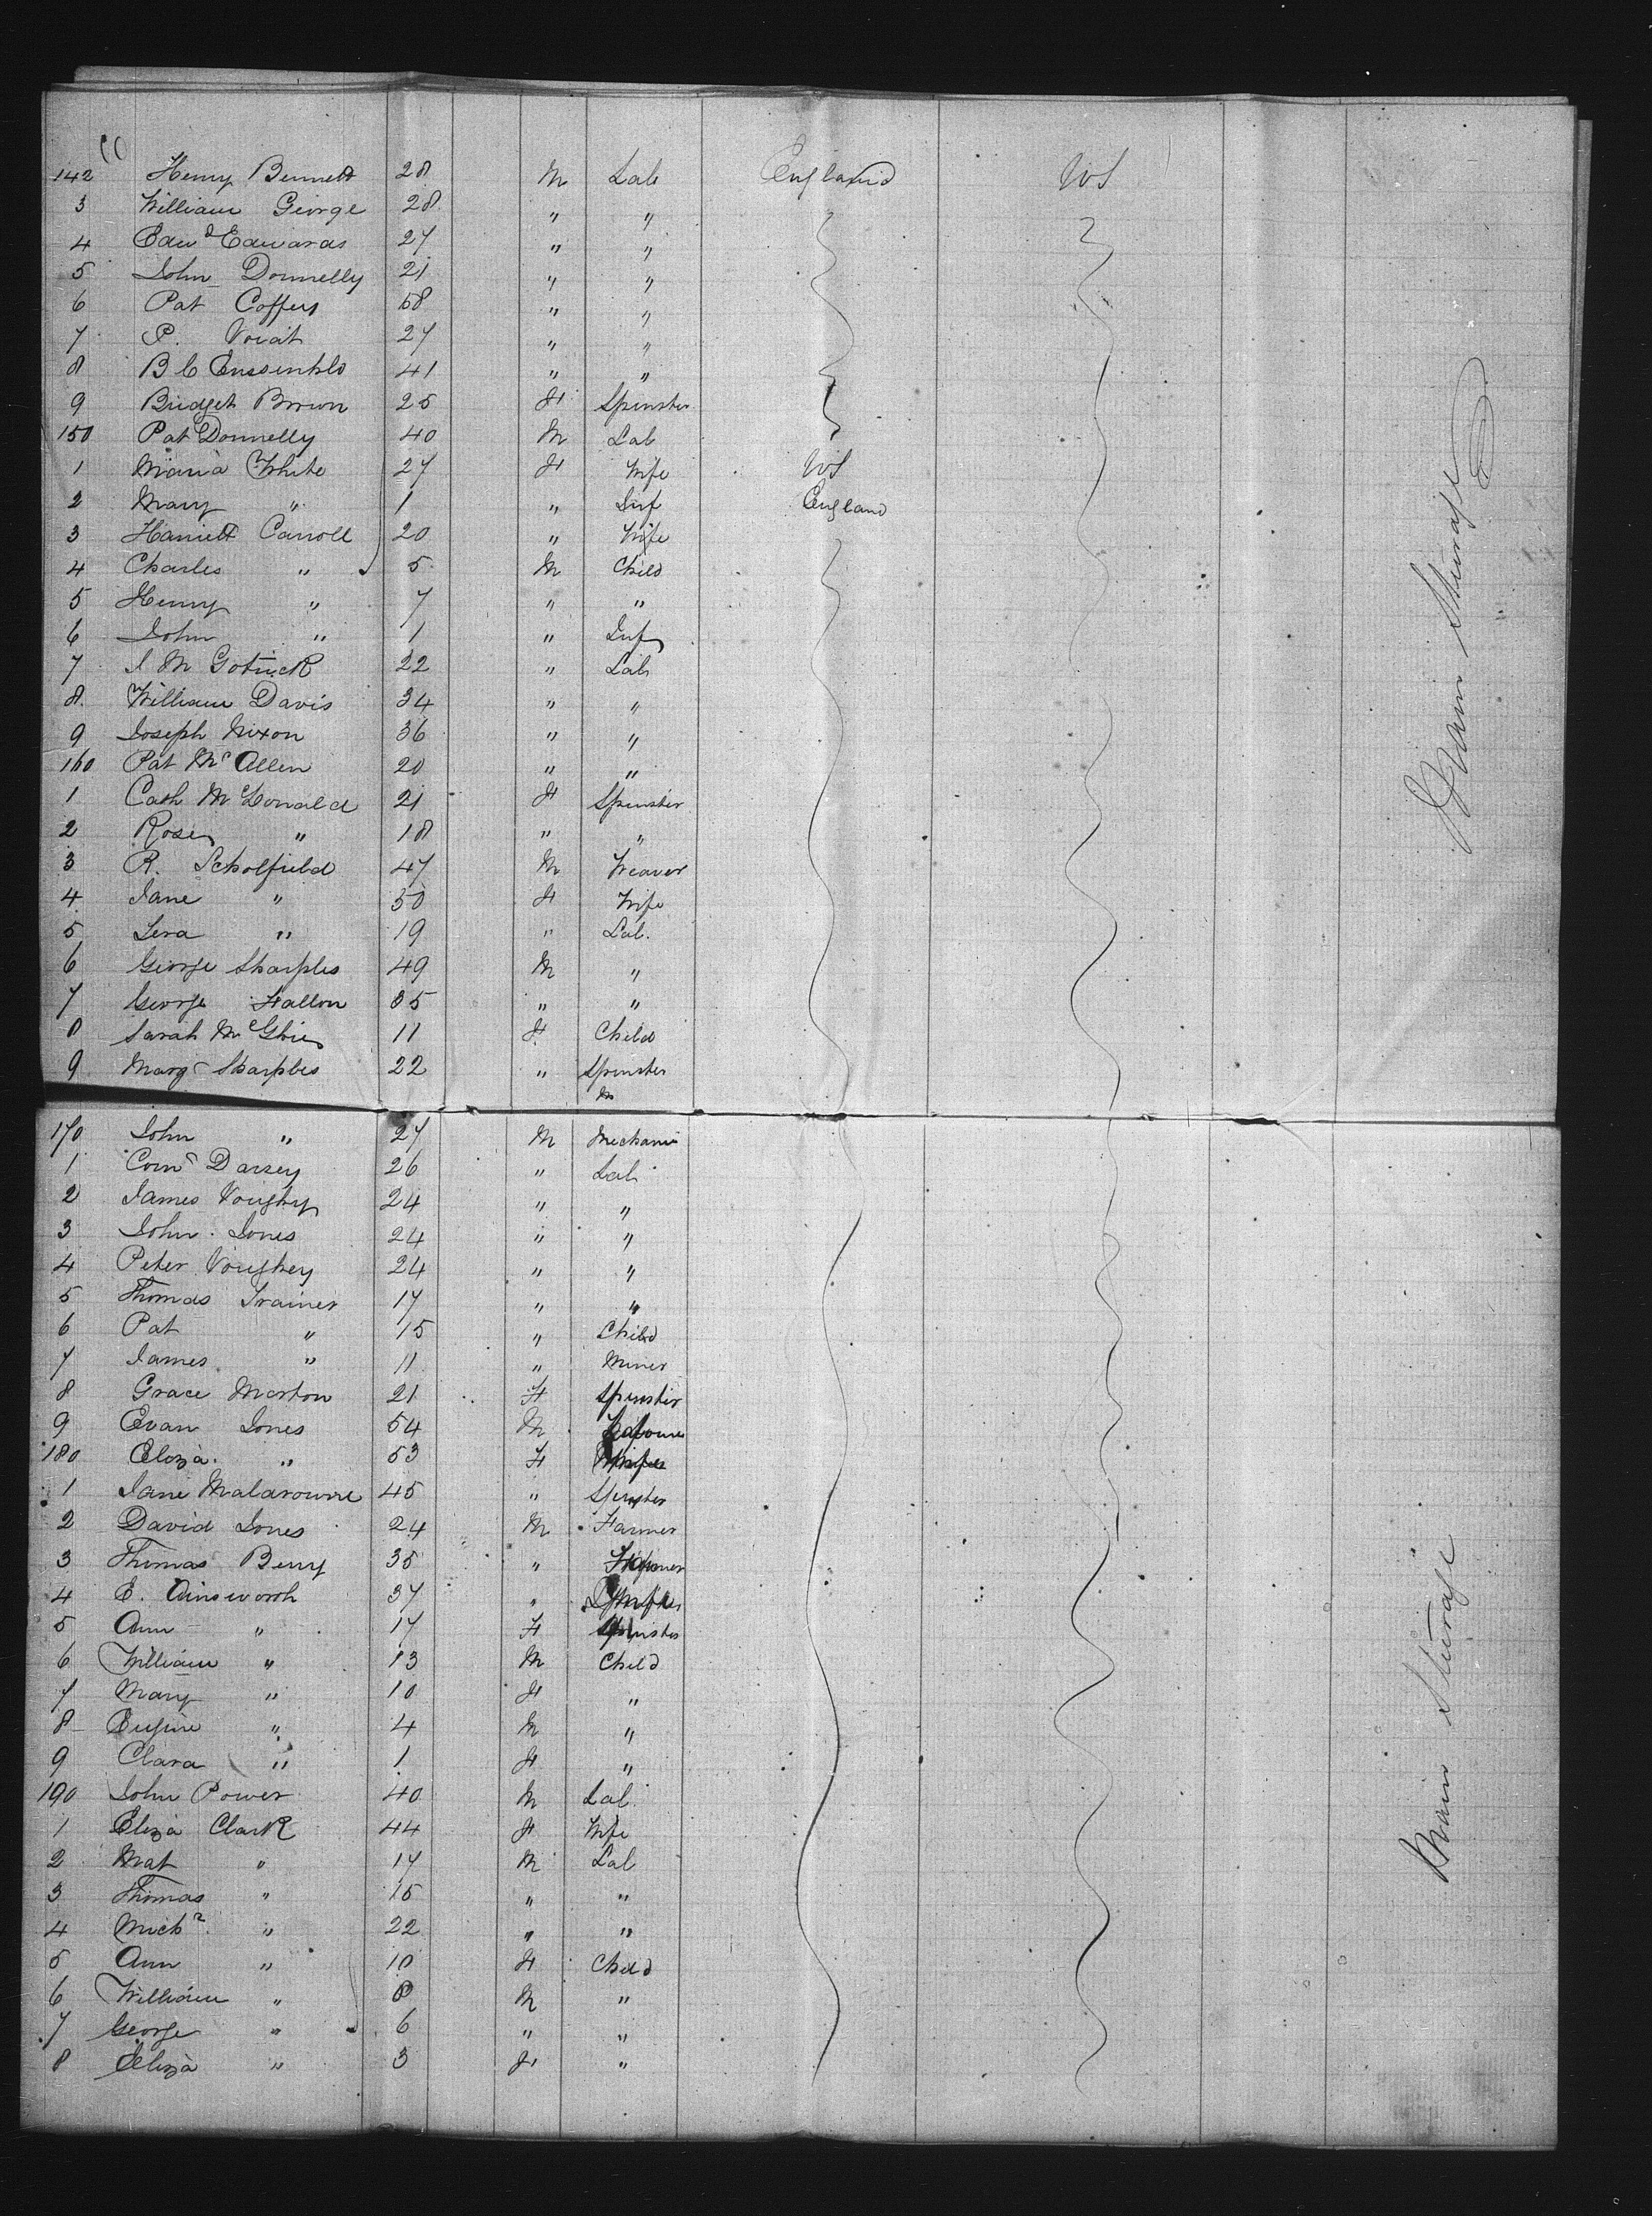 142 Henry Bennett 28 M Lab England US
3 William George 28 " "
4 Edwd Edwards 27 " "
5 John Donnelly 21 " "
6 Pat Coffey 58 " "
7 P. Voiat 27 " "
8 B C 41 " "
9 Bridget Brown 25 F Spinster
150 Pat Donnelly 40 M Lab
1 Maria White 27 F Wife US
2 Mary " 1 " Inf England
3 Harriett Carroll 20 " Wife
4 Charles " 5 M Child
5 Henry " 7 " "
6 John " 1 " Inf
7 J M 22 " Lab
8 William Davis 34 " "
9 Joseph Nixon 36 " "
160 Pat Mc Allen 20 " "
1 Cath McDonald 21 F Spinster
2 Rose " 18 " "
3 R. Scholfield 47 M Weaver
4 Jane " 50 F Wife
5 " 19 " Lab.
6 George Sharples 49 M "
7 George Fallon 35 " "
8 Sarah McGhie 11 F Child
9 Marg Sharples 22 " Spinster
M
170 John " 27 M Mechanic
1 Corns Darsey 26 " Lab
2 James Voughy 24 " "
3 John Jones 24 " "
4 Peter Voughey 24 " "
5 Thomas Trainer 17 " "
6 Pat " 15 " Child
7 James " 11 " Miner
8 Grace Morton 21 F Spinster
9 Evan Jones 54 M
180 Eliza " 53 F Wife
1 Jane Malarowne 45 " Spinster
2 David Jones 24 M Farmer
3 Thomas Berry 35 "
4 E. Ainsworth 37 "
5 Ann " 17 F Spinster
6 William " 13 M Child
7 Mary " 10 F "
8 Eugine " 4 M "
9 Clara " 1 F "
190 John Power 40 M Lab
1 Eliza Clark 44 F Wife
2 Mat " 17 M Lab
3 Thomas " 15 " "
4 Michl " 22 " "
5 Ann " 10 F Child
6 William " 8 M "
7 George " 6 " "
8 Eliza " 3 F "
Main Steerage
Main Steerage